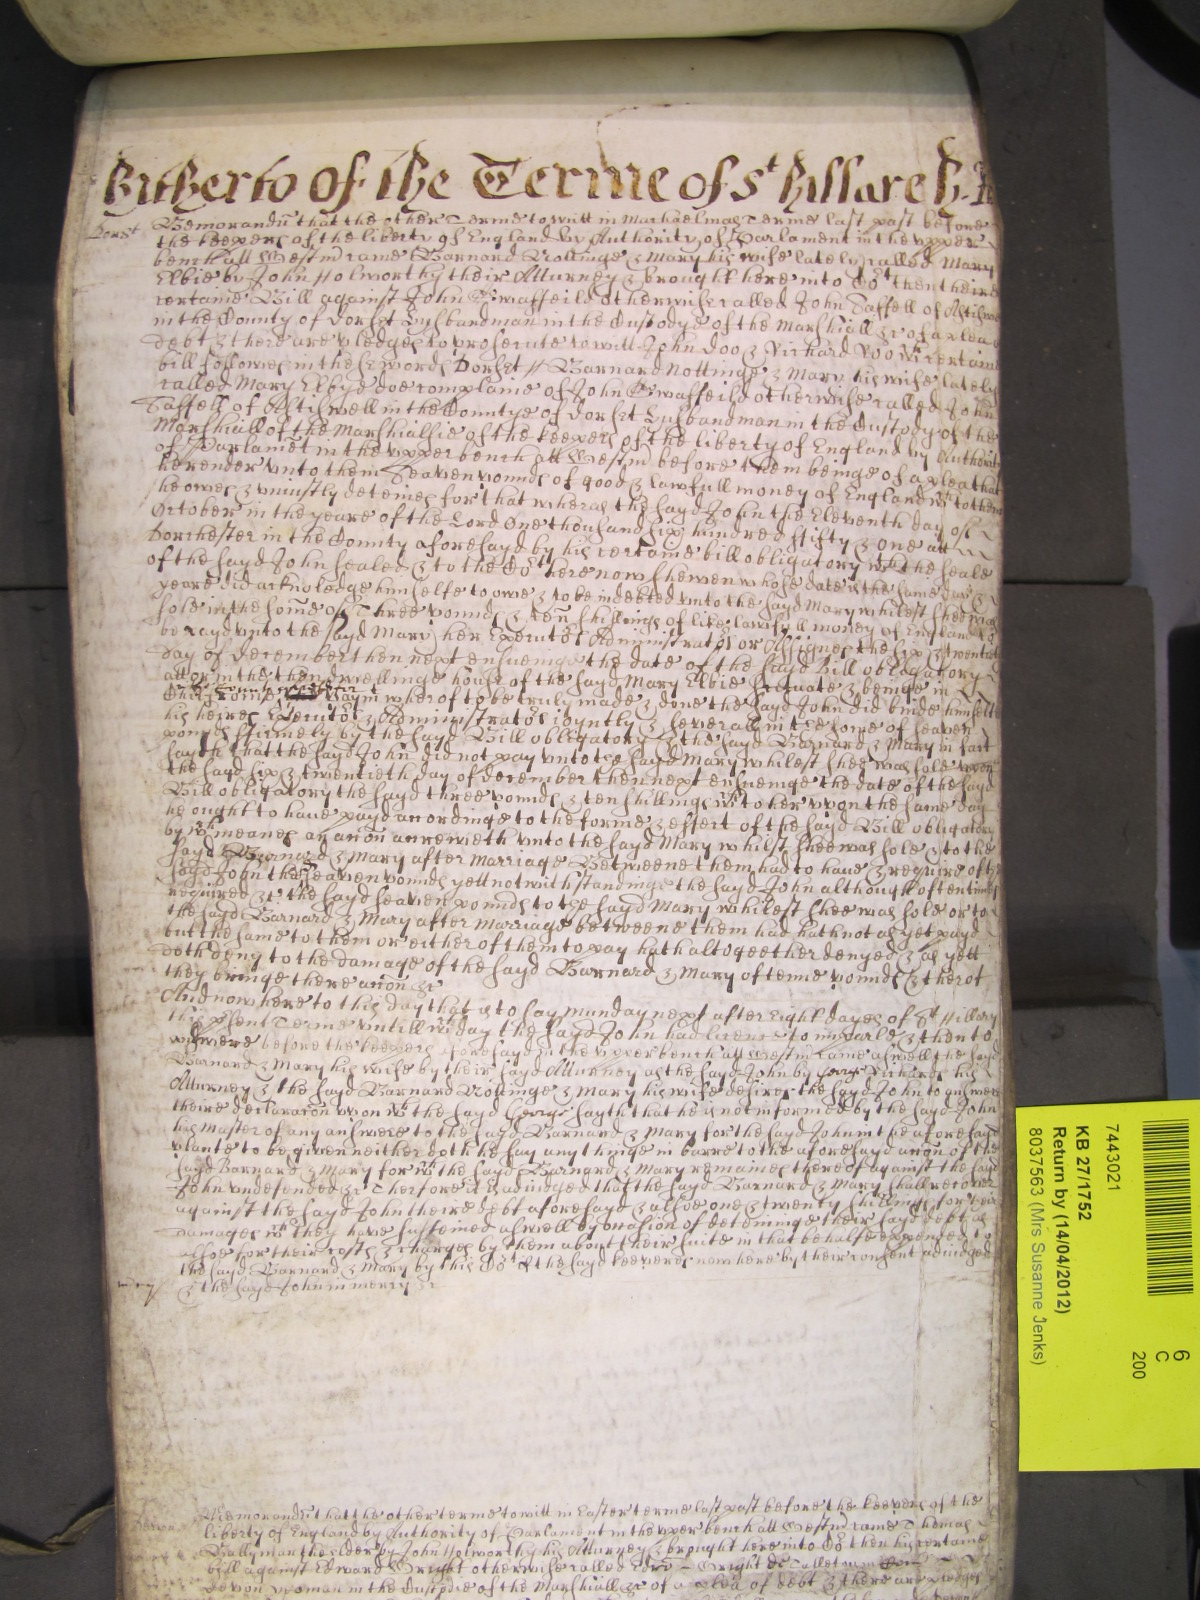 Hitherto of the Terme of St Hillare h.
Dorst
Memorandu that the other Terme to witt in Michaelmas Terme last past before
the keepers of the liberty of England by Authority of Parlament in the upper
bench att Westm came Barnard Nottinge & Mary his wife lately called Mary
Elbie by John Holworthy their Atturney & brought here into Cort then theire
certaine Bill against John Swaffeild otherwise called John Saffell of
in the County of Dorset Husbandman in the Custodye of the Marshiall &c of a plea of
debt & there are pledges to prosecute to witt John Doo & Richard Roo wch certaine
bill followes in these words Dorset // Barnard Nottinge & Mary his wife lately
called Mary Elbye doe complaine of John Swaffeild otherwise called John
Saffell of in the Countye of Dorset Husbandman in the Custody of the
Marshiall of the Marshialsie of the keepers of the liberty of England by Authority
of Parlament in the upper bench att Westm before them beinge of a plea that
he render unto them Seaven pounds of good & lawfull money of England wch to them
he owes & uniustly deteines for that wheras the sayd John the Eleventh day of
October in the yeare of the Lord One thousand six hundred fifty & one att
Dorchester in the County aforesayd by his certaine bill obligatory wth the seale
of the sayd John sealed & to the Cort here now shewen whose date is the same day &
yeare did acknoledge himselfe to owe & to be indebted unto the sayd Mary whilest shee was
sole in the some of Three pounds & ten shillings of like lawfull money of England to
be payd unto the sayd Mary her Executors Administrators or Assignes the six & twentieth
day of December then next ensueinge the date of the sayd Bill obligatory
att or in the then dwellinge house of the sayd Mary Elbie scituate & beinge in
paymt wherof to be truly made & done the sayd John did binde himselfe
his heires Executors & Administrators ioyntly & severally in the some of seaven
pounds firmely by the sayd Bill obligatory & the sayd Barnard & Mary in fact
say that the sayd John did not pay unto the sayd Mary whilest shee was sole upon
the sayd six & twentieth day of December then next ensueinge the date of the sayd
Bill obligatory the sayd three pounds & ten shillings wch to her upon the same day
he ought to have payd accordinge to the forme & effect of the sayd Bill obligatory
by wch meanes an accon accreweth unto the sayd Mary whilst shee was sole & to the
sayd Barnard & Mary after Marriage Betweene them had to have & require of the
sayd John the seaven pounds yett notwithstandinge the sayd John although oftentimes
required &c the sayd seaven pounds to the sayd Mary whilest shee was sole or to
the sayd Barnard & Mary after Marriage betweene them had hath not as yet payd
but the same to them or either of them to pay hath altogeether denyed & as yett
doth deny to the damage of the sayd Barnard & Mary of tenne pounds & therof
they bringe there accon &c
And now here to this day that is to say Munday next after Eight dayes of St Hillary
this psent Terme untill wch day the sayd John had licence to imparle & then to
answere before the keepers aforesayd in the upper bench att Westm came aswell the sayd
Barnard & Mary his wife by their sayd Atturney as the sayd John by George Richards his
Atturney & the sayd Barnard Nottinge & Mary his wife desires the sayd John to answer
theire declaracon upon wch the sayd George sayth that he is not informed by the sayd John
his Master of any answere to the sayd Barnard & Mary for the sayd John in the aforesayd
plante to be given neither doth he say any thinge in barre to the aforesayd accon of the
sayd Barnard & Mary for wch the sayd Barnard & Mary remaines thereof against the sayd
John undefended &c Therfore it is adiudged that the sayd Barnard & Mary shall recover
against the sayd John theire debt aforesayd & alsoe one & twenty shillings for their
damages wch they have susteined aswell by occasion of deteininge their sayd debt as
alsoe for their costs & charges by them about their suite in that behalfe expended to
the sayd Barnard & Mary by this Cort of the sayd keepers now here by their consent adiudged
& the sayd John in mercy &c
mcy
Devon
Memorandu that the other terme to witt in Easter terme last past before the keepers of the
liberty of England by Authority of Parlament in the upper bench att Westm came Thomas
Ballyman the elder by John Holworthy his Atturney & brought here into Cort then his certaine
bill against Edward Wright otherwise called Edw Wright
Devon yeoman in the Custodie of the Marshiall &c of a plea of debt & there are pledges
7443021
KB 27/1752
Return by (14/04/2012)
8037563 (Mrs Susanne Jenks)
6
C
200